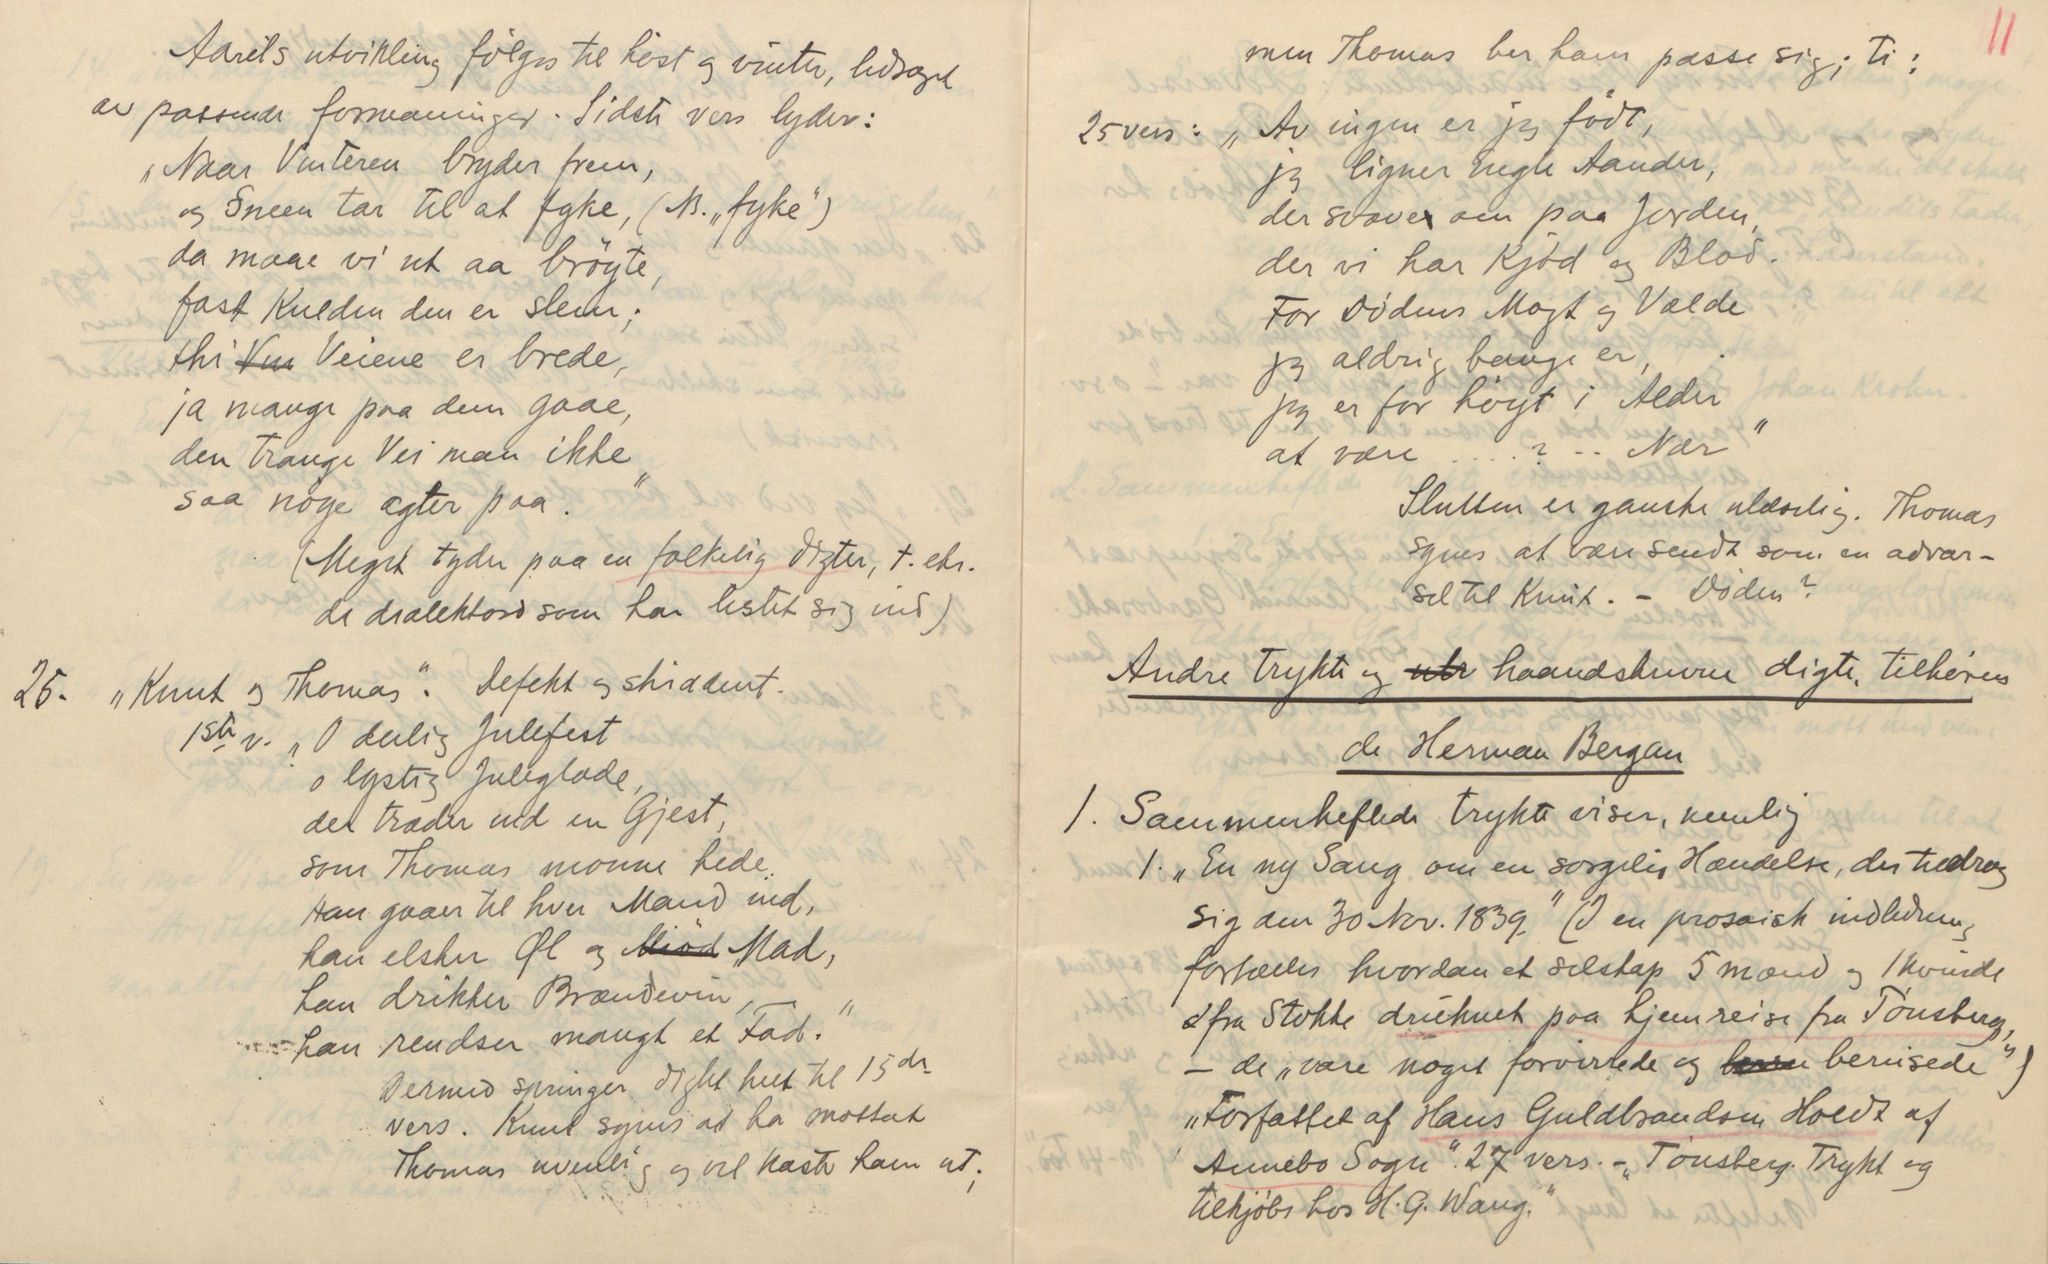 Aarets utvikling fölges til höst og vinter, ledsaget
av passende formaninger. Sidste vers lyder:
"Naar Vinteren bryder frem,
og Sneen tar til at fyke, (N. "fyke")
da maae vi ut aa bröyte,
fast Kulden den er slem;
thi Veiene er brede,
ja mange paa dem gaae,
den trange Vei man ikke
saa nöye agter paa."
(Meget tyder paa en folkelig digter, t. eks.
de dialektord som har listet sig ind)
25. "Knut og Thomas". Defekt og skiddent.
1ste v. "O deilig Julefest
o lystig Juleglæde,
der træder ind en Gjest,
som Thomas monne hede.
Han gaaer til hver Mand ind,
han elsker Øl og Miöd Mad,
han drikker Brændevin, —
han rendser mangt et Fad."
Dermed springer digtet helt til 15de
vers. Knut synes at ha mottat
Thomas uvenlig og vil kaste ham ut;
11
men Thomas ber ham passe sig; ti:
25 vers: "Av ingen er jeg födt,
jeg ligner negle Aander,
der svæver om paa Jorden,
der vi har Kjöd og Blod.
For Dödens Magt og Vælde
jeg aldrig bange er,
jeg er for höyt i Alder
at være .... ? .. Nær"
Slutten er ganske ulæselig. Thomas
synes at være sendt som en advar-
sel til Knut. - Döden?
Andre trykte og haandskrevne digte, tilhörende
Herman Bergan
1. Sammenheftede trykte viser, nemlig
1. "En ny Sang om en sorgelig Hændelse, der tildrog
sig den 30 Nov. 1839." (I en prosaisk indledning
fortælles hvordan et selskap 5 mænd og 1 kvinde
fra Stokke druknet paa hjemreise fra Tönsberg,
— de "vare noget forvirrede og berusede")
"Forfattet af Hans Guldbrandsen Hoedt af
Annebo Sogn". 27 vers. - "Tönsberg. Trykt og
tilkjöbs hos H. G. Wang."